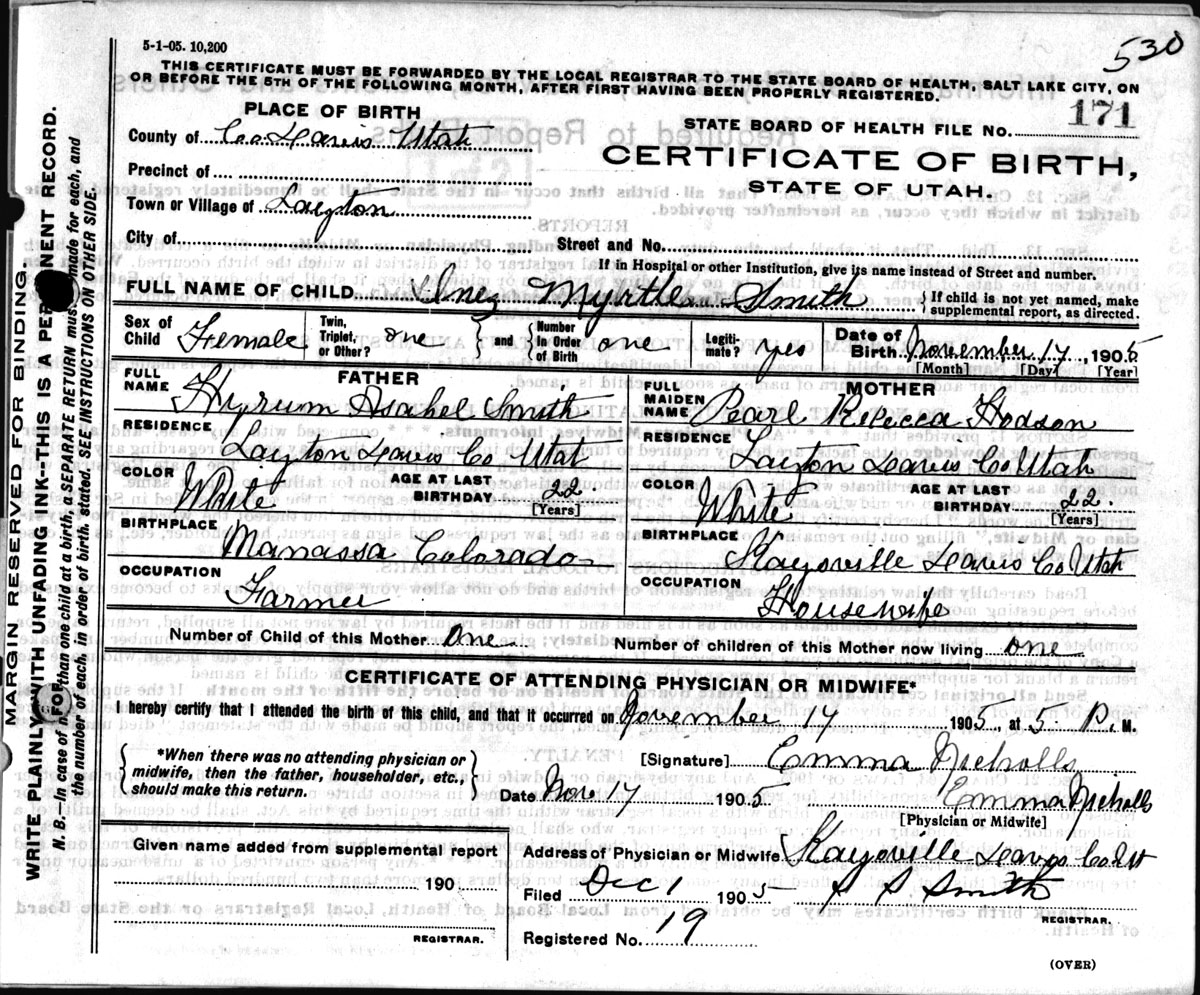 5-1-05. 10,200
530
THIS CERTIFICATE MUST BE FORWARDED BY THE LOCAL REGISTRAR TO THE STATE BOARD OF HEALTH, SALT LAKE CITY, ON
OR BEFORE THE 5TH OF THE FOLLOWING MONTH, AFTER FIRST HAVING BEEN PROPERLY REGISTERED.
PLACE OF BIRTH
STATE BOARD OF HEALTH FILE NO. 171
County of Co Davis Utah
CERTIFICATE OF BIRTH,
STATE OF UTAH.
Precinct of
Town or Village of Layton
City of Street and No.
If in Hospital or other Institution, give its name instead of Street and number.
FULL NAME OF CHILD Inez Myrtle Smith { If child is not yet named, make supplemental report, as directed.
Sex of Child Female Twin, Triplet, or Other? one } and { Number In Order of Birth one Legitimate? yes Date of Birth November 17, 1905
[Month] [Day] [Year]
FATHER
FULL NAME Hyrum Asahel Smith
RESIDENCE Layton Davis Co Utah
COLOR White AGE AT LAST BIRTHDAY 22
[Years]
BIRTHPLACE Manassa Colorado
OCCUPATION Farmer
MOTHER
FULL MAIDEN NAME Pearl Rebecca Hodson
RESIDENCE Layton Davis Co Utah
COLOR White AGE AT LAST BIRTHDAY 22.
[Years]
BIRTHPLACE Kaysville Davis Co Utah
OCCUPATION Housewife
Number of Child of this Mother one Number of children of this Mother now living one
CERTIFICATE OF ATTENDING PHYSICIAN OR MIDWIFE*
I hereby certify that I attended the birth of this child, and that it occurred on November 17 1905, at 5 P. M.
{ *When there was no attending physician or midwife, then the father, householder, etc., should make this return. }
[Signature] Emma Nicholls
Date Nov 17 1905 Emma Nicholls
[Physician or Midwife]
Given name added from supplemental report
190
REGISTRAR.
Address of Physician or Midwife Kaysville Davis Co Ut
Filed Dec 1 1905 Smith
REGISTRAR.
Registered No. 19
(OVER)
MARGIN RESERVED FOR BINDING.
WRITE PLAINLY WITH UNFADING INK--THIS IS A PERMANENT RECORD.
N. B.--In case of more than one child at birth, a SEPARATE RETURN must be made for each, and
the number of each, in order of birth, stated. SEE INSTRUCTIONS ON OTHER SIDE.